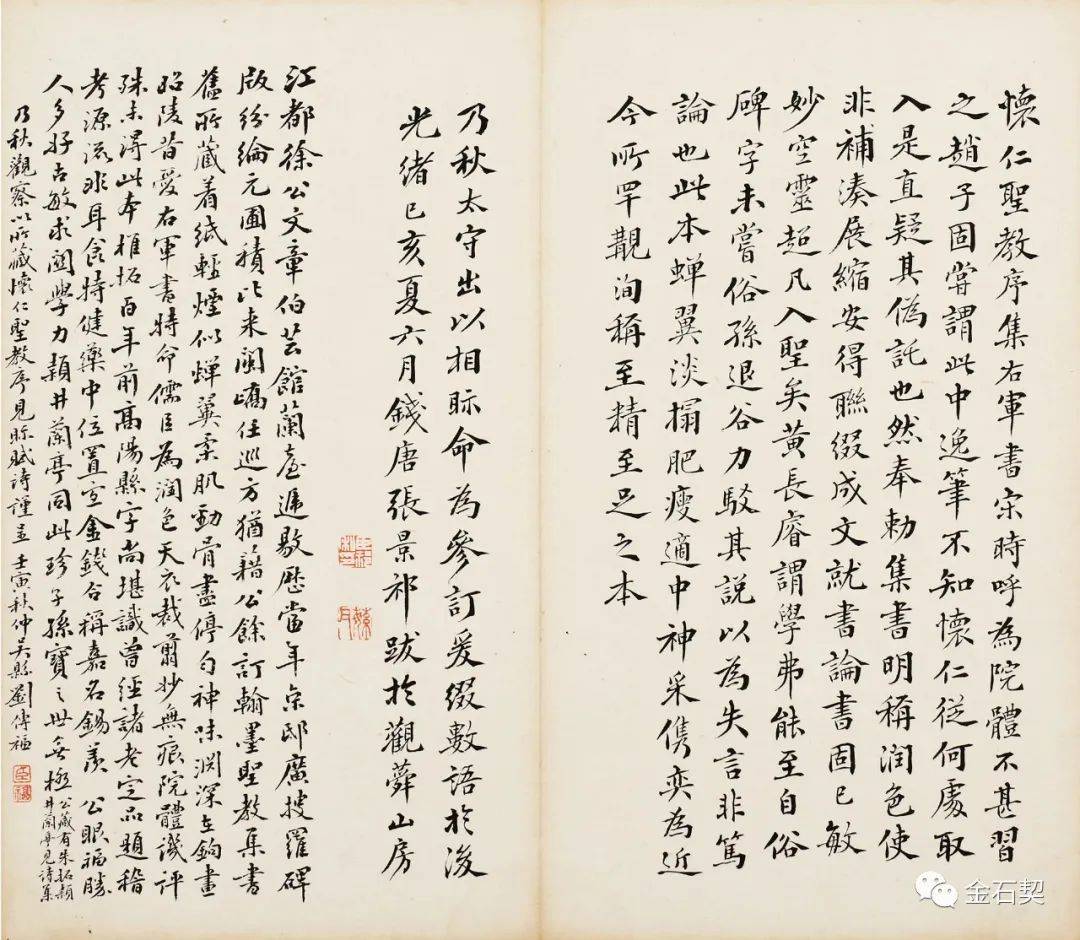 懷仁聖教序集右軍書宋時呼為院體不甚習
之趙子固嘗謂此中逸筆不知懷仁從何處取
入是直疑其偽託也然奉勅集書明稱潤色使
非補湊展縮安得聯綴成文就書論書固已敏
妙空靈超凡入聖矣黃長睿謂學弗能至自俗
碑字未嘗俗孫退谷力駁其說以為失言非篤
論也此本蟬翼淡搨肥瘦適中神采雋奕為近
今所罕覯洵稱至精至足之本
乃秋太守出以相眎命為參訂爰綴數語於後
光緒已亥夏六月錢唐張景祁跋於觀蕣山房
江都徐公文章伯芸館蘭臺遞敭歷當年京邸廣搜羅碑
版紛綸元圃積比来閩嶠任巡方猶藉公餘訂翰墨聖教集書
舊所藏着紙輕煙似蟬翼柔肌勁骨盡停勻神味淵深在鉤畫
昭陵昔愛右軍書特命儒臣為潤色天衣裁翦妙無痕院體譏評
殊未得此本椎拓百年前高陽縣字尚堪識曾經諸老定品題稽
考源流非耳食特健藥中位置宜金錢合稱嘉名錫羨 公眼福勝
人多好古敏求闳學力潁井蘭亭同此珍子孫寶之世無極
公藏有朱拓潁
井蘭亭見詩集
乃秋觀察以所藏懷仁聖教序見眎賦詩謹呈 壬寅秋仲吳縣劉傳福
金石契